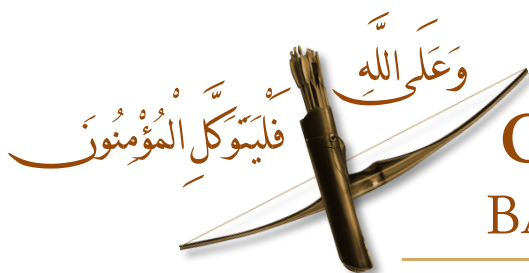 وَعَلَى اللَّهِ
فَلْيَتَوَكَّلِ الْمُؤْمِنُونَ